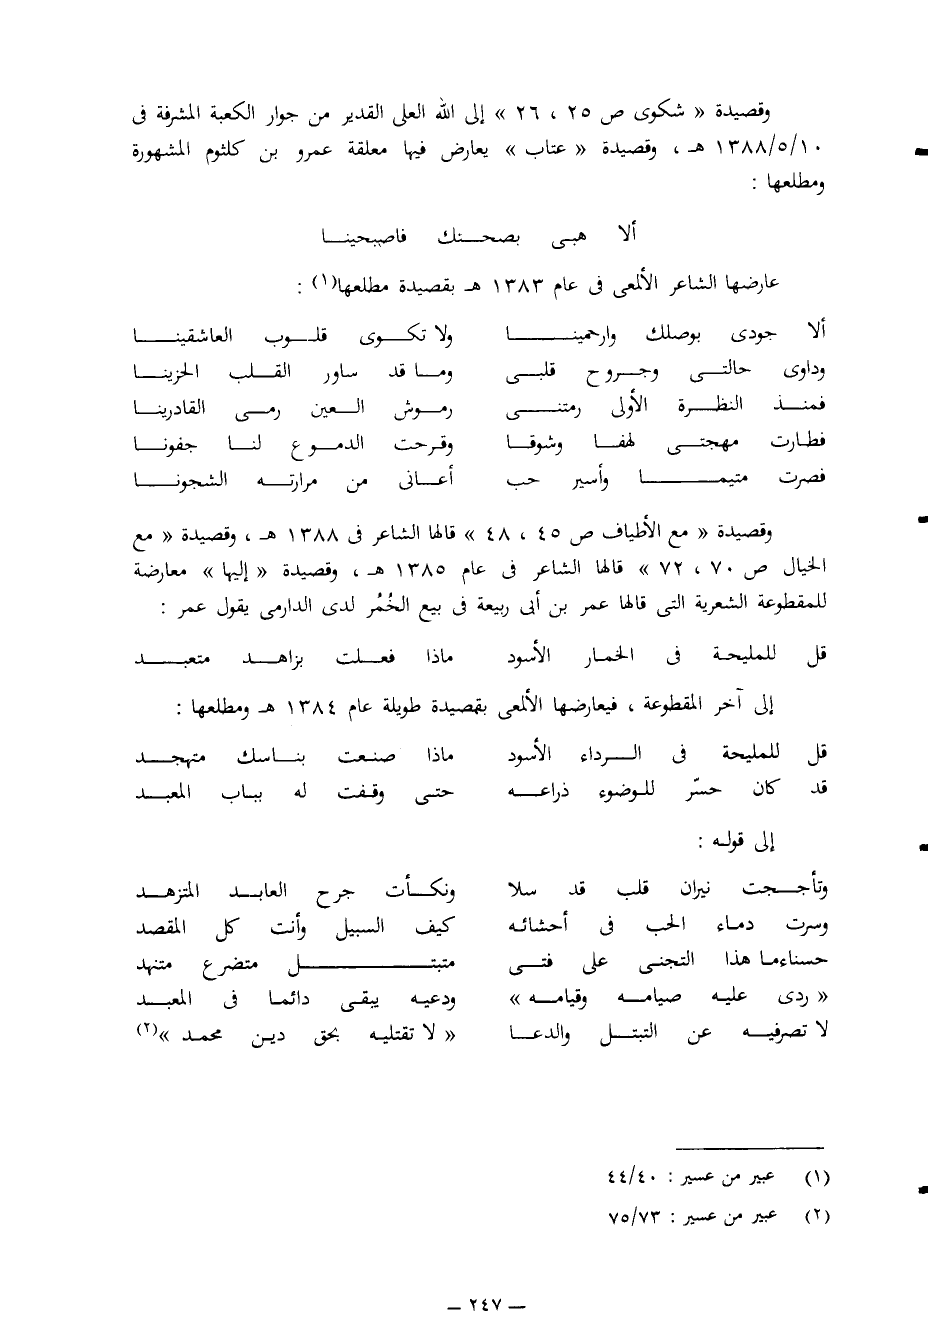 وقصيدة « شكوى ص ٢٥ ، ٢٦ » إلى الله العلى القدير من جوار الكعبة المشرفة فى
١٣٨٨/٥/١٠ هـ ، وقصيدة « عتاب » يعارض فيها معلقة عمرو بن كلثوم المشهورة
ومطلعها :
ألا هبى بصحنك فاصبحينا
عارضها الشاعر الألمعى فى عام ١٣٨٣ هـ بقصيدة مطلعها(١) :
ألا جودى بوصلك وارحمينا ولا تكوى قلوب العاشقينا
وداوى حالتى وجروح قلبى وما قد ساور القلب الحزينا
فمنذ النظرة الأولى رمتنى رموش العين رمى القادرينا
فطارت مهجتى لهفا وشوقا وقرحت الدموع لنا جفونا
فصرت متيما وأسير حب أعانى من مرارته الشجونا
وقصيدة « مع الأطياف ص ٤٥ ، ٤٨ » قالها الشاعر فى ١٣٨٨ هـ ، وقصيدة « مع
الخيال ص ٧٠ ، ٧٢ » قالها الشاعر فى عام ١٣٨٥ هـ ، وقصيدة « إليها » معارضة
للمقطوعة الشعرية التى قالها عمر بن أبى ربيعة فى بيع الخُمُر لدى الدارمى يقول عمر :
قل للمليحة فى الخمار الأسود ماذا فعلت بزاهد متعبد
إلى آخر المقطوعة ، فيعارضها الألمعى بقصيدة طويلة عام ١٣٨٤ هـ ومطلعها :
قل للمليحة فى الرداء الأسود ماذا صنعت بناسك متهجد
قد كان حسّر للوضوء ذراعه حتى وقفت له بباب المعبد
إلى قوله :
وتأججت نيران قلب قد سلا ونكأت جرح العابد المتزهد
وسرت دماء الحب فى أحشائه كيف السبيل وأنت كل المقصد
حسناءما هذا التجنى على فتى متبتل متضرع متنهد
« ردى عليه صيامه وقيامه » ودعيه يبقى دائما فى المعبد
لا تصرفيه عن التبتل والدعا « لا تقتليه بحق دين محمد »(٢)
(١) عبير من عسير : ٤٤/٤٠
(٢) عبير من عسير : ٧٥/٧٣
— ٢٤٧ —